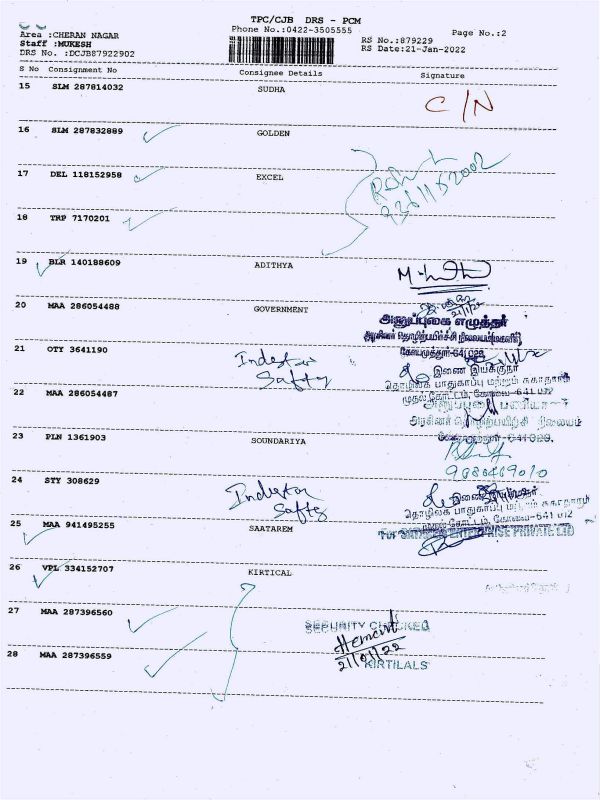 TPC/CJB DRS - PCM
Area :CHERAN NAGAR
Phone No.:0422-3505555
Page No.:2
Staff :MUKESH
RS No.:879229
DRS No. :DCJB87922902
RS Date:21-Jan-2022
S No Consignment No Consignee Details Signature
15 SLM 287814032 SUDHA
C/N
16 SLM 287832889 GOLDEN
17 DEL 118152958 EXCEL
18 TRP 7170201
19 BLR 140188609 ADITHYA
20 MAA 286054488 GOVERNMENT
21/1/22
அனுப்புகை எழுத்தர்
அரசினர் தொழிற்பயிற்சி நிலையம்
கோயமுத்தூர்-641 029.
21 OTY 3641190
இணை இயக்குநர்
தொழிலக பாதுகாப்பு மற்றும் சுகாதாரம்
22 MAA 286054487
முதல் கோட்டம், கோவை-641 012
அரசினர் தொழிற்பயிற்சி நிலையம்
23 PLN 1361903 SOUNDARIYA
24 STY 308629
இணை இயக்குநர்
தொழிலக பாதுகாப்பு மற்றும் சுகாதாரம்
முதல் கோட்டம், கோவை-641 012
25 MAA 941495255 SAATAREM
ENTERPRISE PRIVATE LTD
26 VPL 334152707 KIRTICAL
27 MAA 287396560
SECURITY CHECKED
Hement
21/01/22
28 MAA 287396559
KIRTILALS